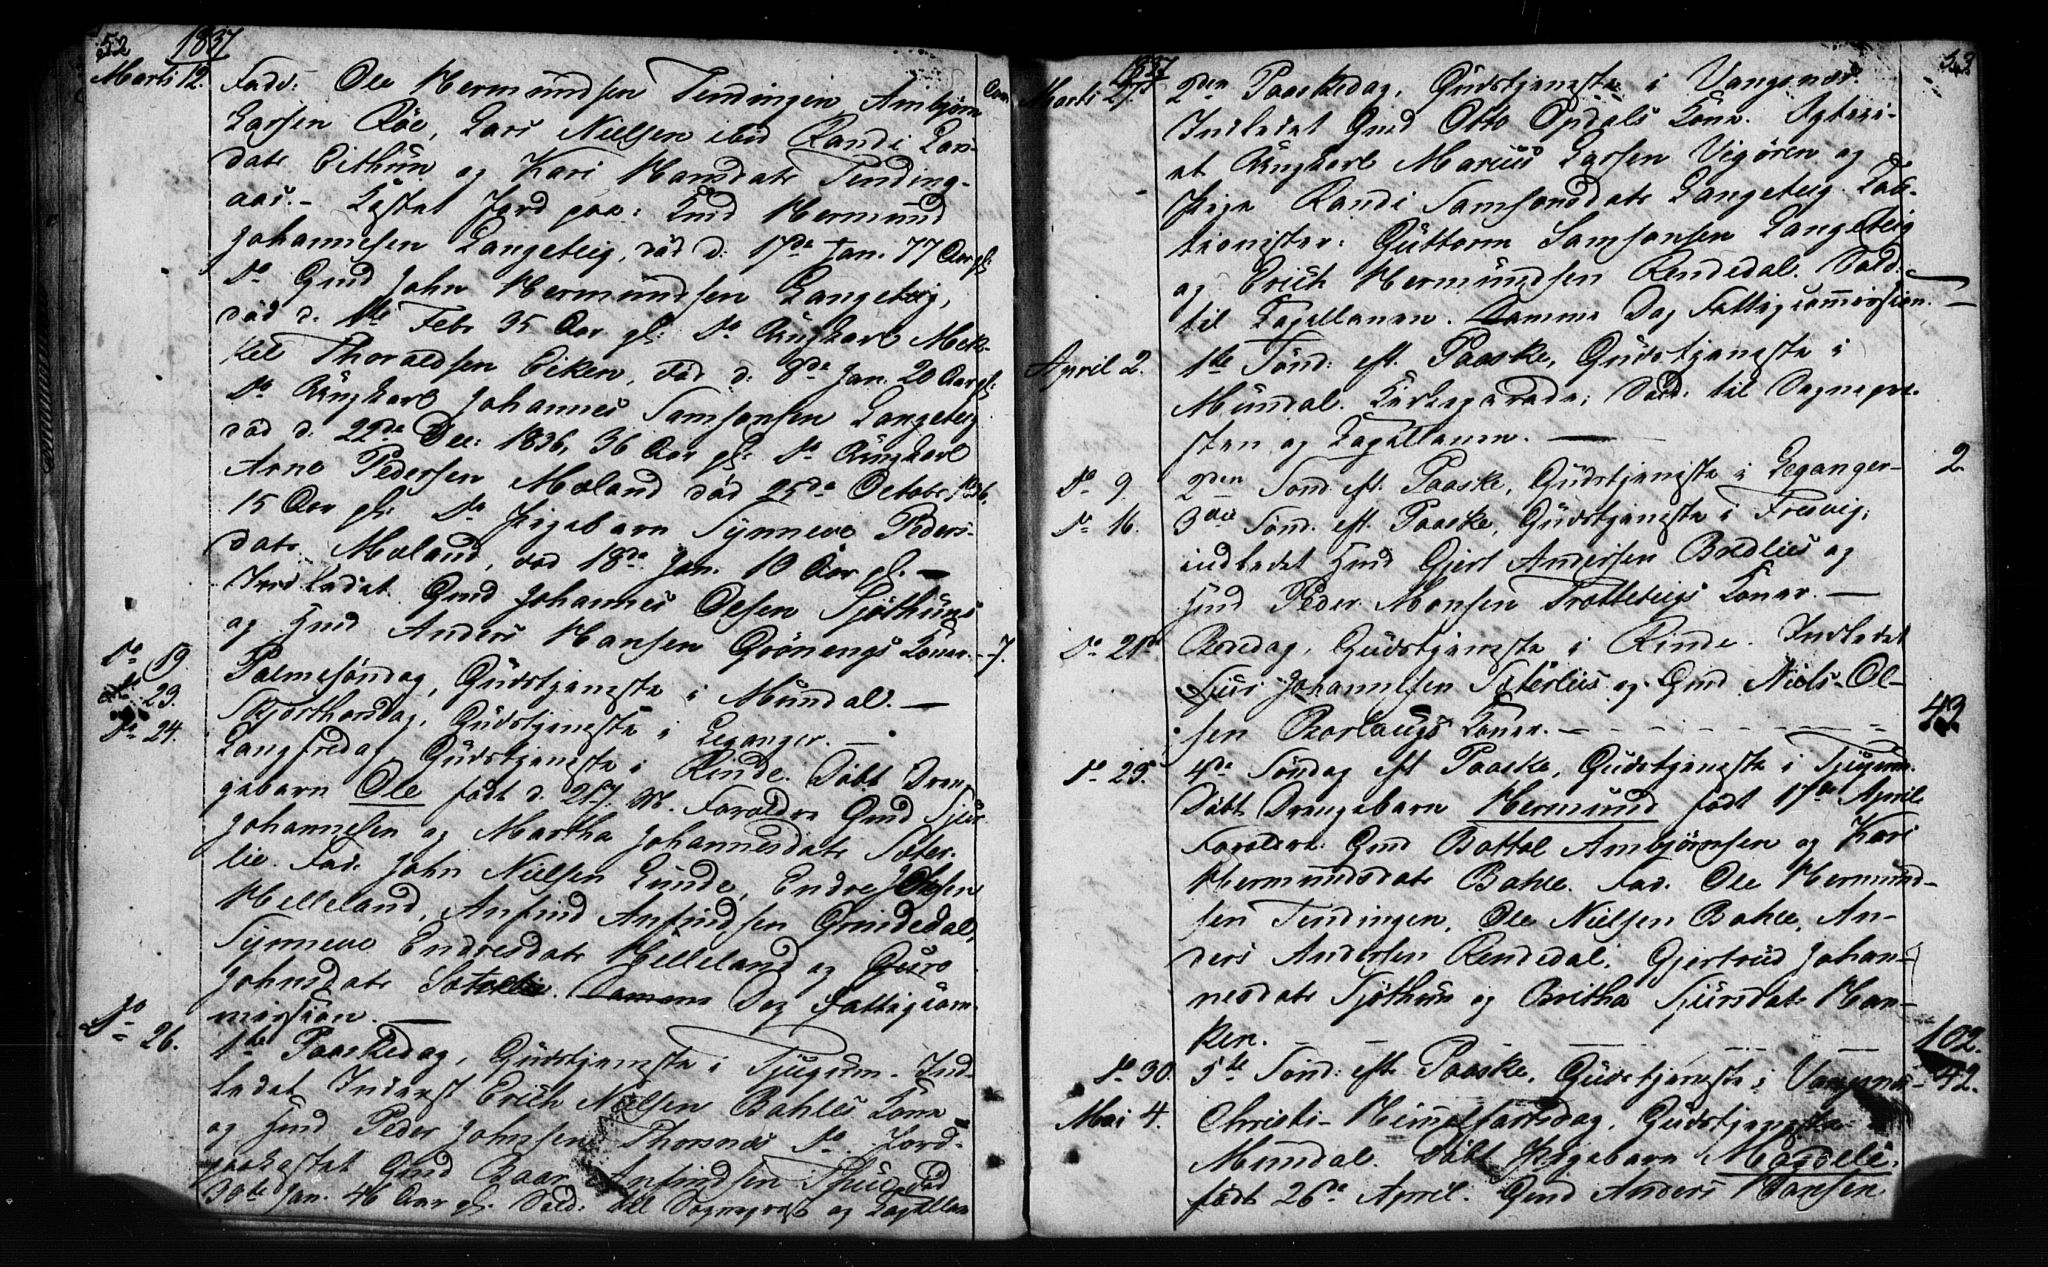 52 1837
Marti 12. Fadd: Ole Hermundsen Tendingen, Ambjørn Com
Larsen Röe, Lars Nielsen ibid Randi Lar-
datr Eithun og Kari Hansdatr Tending-
aas. - Kastet Jord paa: Hmd Hermund
Johannesen Langeteig, död d: 17de Jan. 77 Aar gl:
Do Gmd John Hermundsen Langeteig,
död d. 1ste Febr 35 Aar gl: Do Ungkarl Mik-
kel Thoraldsen Eiken, död d: 8de Jan. 20 Aar gl:
Do Ungkarl Johannes Samsonsen Langeteig
död d. 22de Dec: 1836, 36 Aar gl: Do Ungkarl
Arne Pedersen Moland död 25de Octobr 1836,
15 Aar gl: Do Pigebarn Synneve Peders-
datr Moland, död 18de Jan. 10 Aar gl. —
Indledet Gmd Johannes Olsen Sjøthuns
og Hmd Anders Hansen Grönengs Koner. - 7.
Do 19. Palmesöndag, Gudstjeneste i Mundal. —
Do 23. Skjærthorsdag, Gudstjeneste i Leganger. —
Do 24. Langfredag Gudstjeneste i Rinde. Döbt Dren-
gebarn Ole født d. 21 M. Forældre Gmd Sjur
Johannesen og Martha Johannesdatr Sæter-
lie. Fad: John Nielsen Lunde, Endre Olsen
Helleland, Anfind Anfindsen Grindedal,
Synneve Endresdatr Helleland og Guro
Johnsdatr Sæterlie. Samme Dag Fattigcom-
mission. —
Do 26. 1ste Paaskedag, Gudstjeneste i Tjugum. Ind-
ledet Inderst Erich Nielsen Bahles Kone
og Hmd Peder Johnsen Thorsnæs Do. Jord-
paakastet Gmd Baar Anfindsen Thue död
30te Jan. 46 Aar gl. Vald: til Sogneprest og Capellan
1837 53
Marti 27. 2den Paaskedag, Gudstjeneste i Vangsnæs.
Indledet Gmd Otto Opdals Kone. Ægtevi-
et Ungkarl Marius Larsen Vigøren og
Pige Randi Samsonsdatr Langeteig. Cau-
tionister: Guttorm Samsonsen Langeteig
og Erich Hermundsen Rendedal. Vald:
til Capellanen. Samme Dag Fattigcommission. —
April 2. 1ste Sønd: eft. Paaske, Gudstjeneste i
Mundal. Kirkeparade; Vald: til Sognepre-
sten og Capellanen. —
Do 9. 2den Sönd: eft. Paaske, Gudstjeneste i Leganger- 2
Do 16. 3die Sønd. eft. Paaske, Gudstjeneste i Fresvig;
indledet Hmd Gjert Andersen Bredlies og
Hmd Peder Monsen Trotteteigs Koner. —
Do 21de Bededag, Gudstjeneste i Rinde. Indledet
Sjur Johannesen Sæterlies og Gmd Niels Ol-
sen Borlaugs Koner. — 43
Do 23. 4de Søndag eft Paaske, Gudstjeneste i Tjugum.
Döbt Drengebarn Hermund født 17de April.
Forældre: Gmd Bottol Ambjørnsen og Kari
Hermundsdatr Bahle. Fad. Ole Hermund-
sen Tendingen, Ole Nielsen Bahle, An-
ders Andersen Rendedal, Gjertrud Johan-
nesdatr Sjøthun og Britha Sjursdatr Han-
ken. — 102.
Do 30. 5te Sönd: eft Paaske, Gudstjeneste i Vangsnæs 42.
Mai 4. Christi-Himmelfartsdag, Gudstjeneste
Mundal. Döbt Pigebarn Mardele.
født 26de April. Gmd Anders Hansen